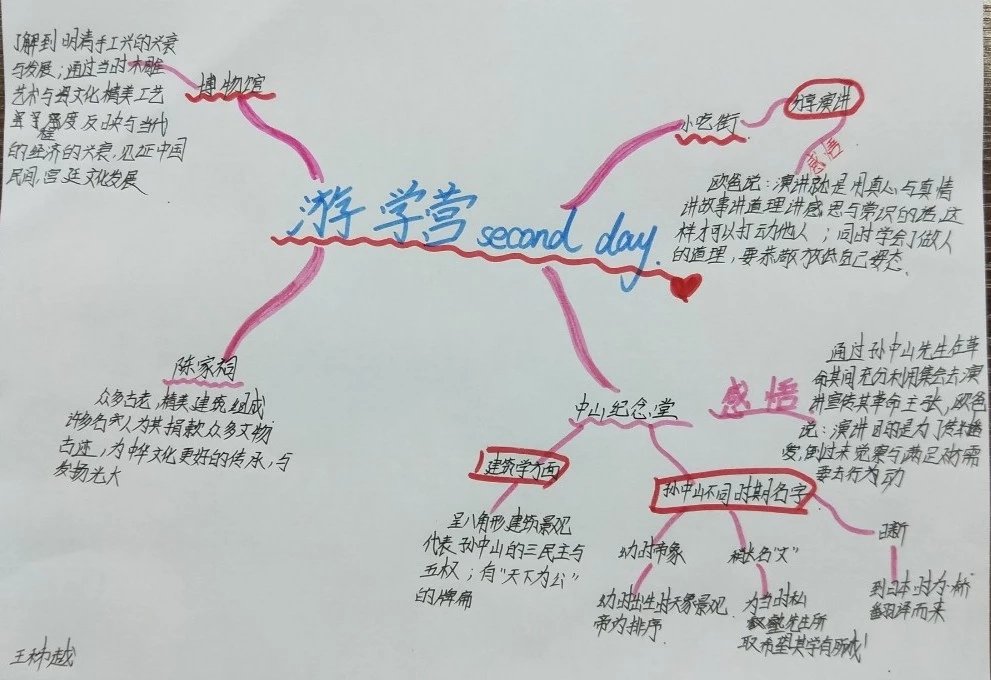 游学营 second day.
博物馆
了解到明清手工兴的兴衰
与发展；通过当时木雕
艺术与文化精美工艺
程度反映与当代
的经济的兴衰，见证中国
民间，宫廷文化发展
小吃街
分享演讲
感悟
欧爸说：演讲就是用真心与真情
讲故事讲道理讲感思与常识的话，这
样才可以打动他人；同时学会了做人
的道理，要恭敬放低自己姿态.
陈家祠
众多古老，精美建筑组成
许多名人为其捐款众多文物
古迹，为中华文化更好的传承，与
发扬光大
中山纪念堂
感悟
通过孙中山先生在革
命其间充分利用集会去演
讲宣传其革命主张，欧爸
说：演讲目的是为了
倒过来觉察与满足
要去行为动
建筑学方面
呈八角形建筑景观
代表孙中山的三民主与
五权；有“天下为公”
的牌匾
孙中山不同时期名字
幼时帝象
幼时出生时天象景观
帝为排序.
名“文”
为当时私
塾先生所
取希望其学有所成
日新
到日本时为·桥
翻译而来
王种越